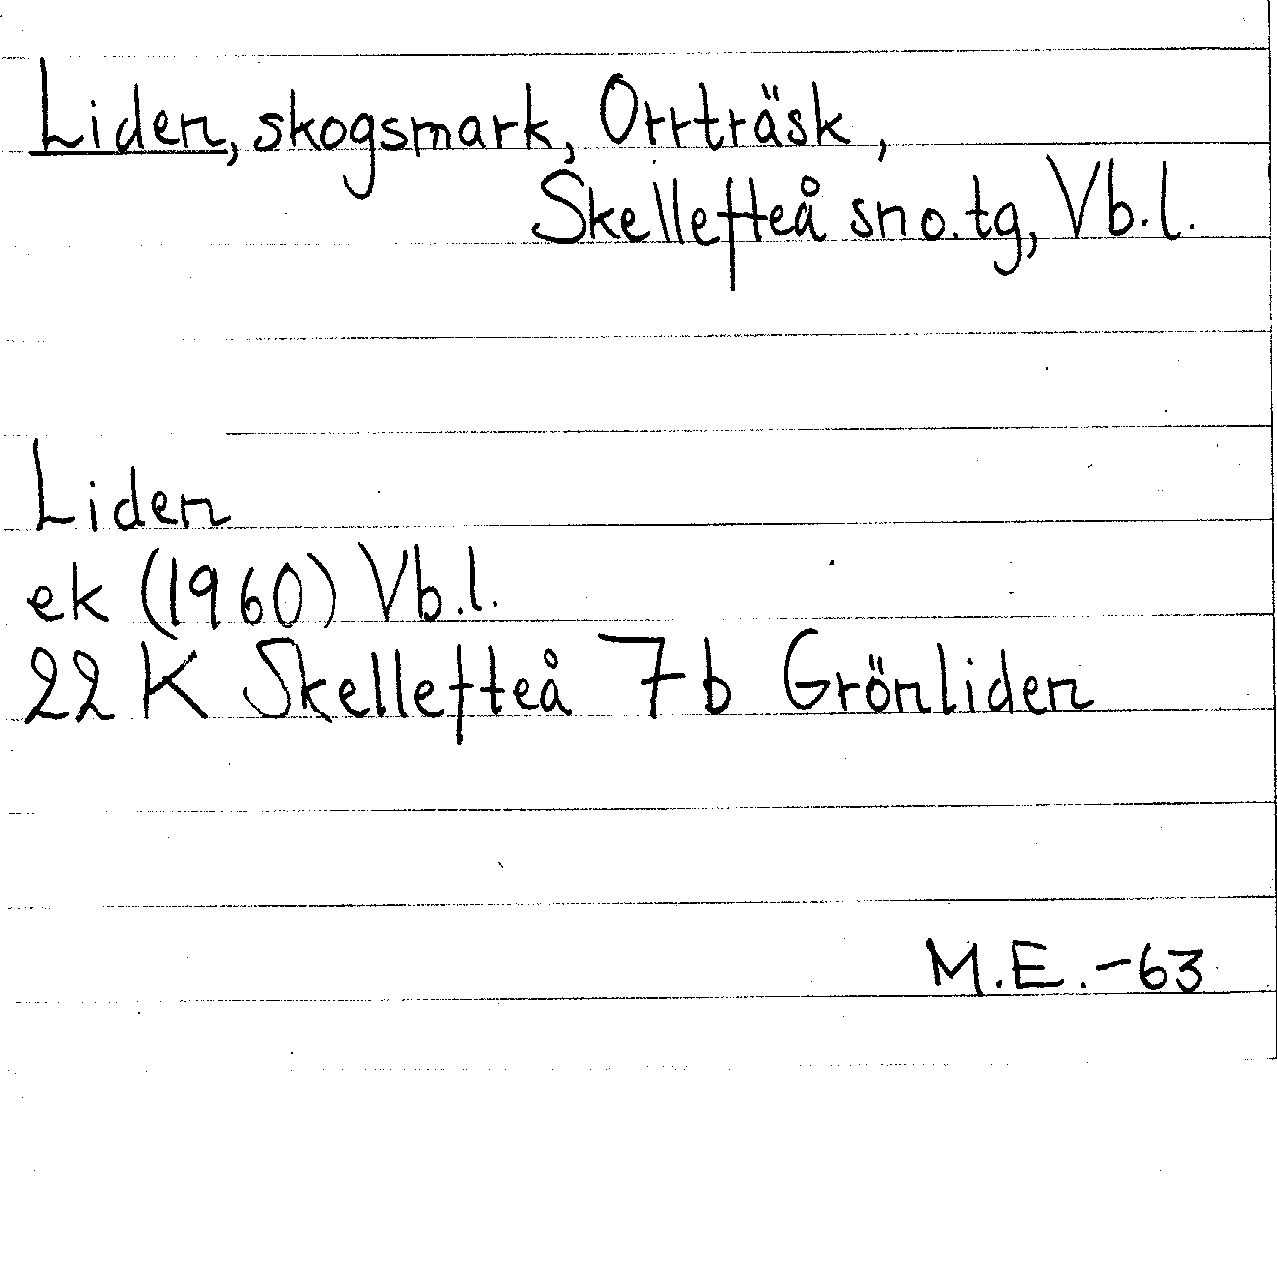 Liden, skogsmark, Orrträsk,
Skellefteå sn o. tg, Vb.l.
Liden
ek (1960) Vb.l.
22 K Skellefteå 7b Grönliden
M.E.-63